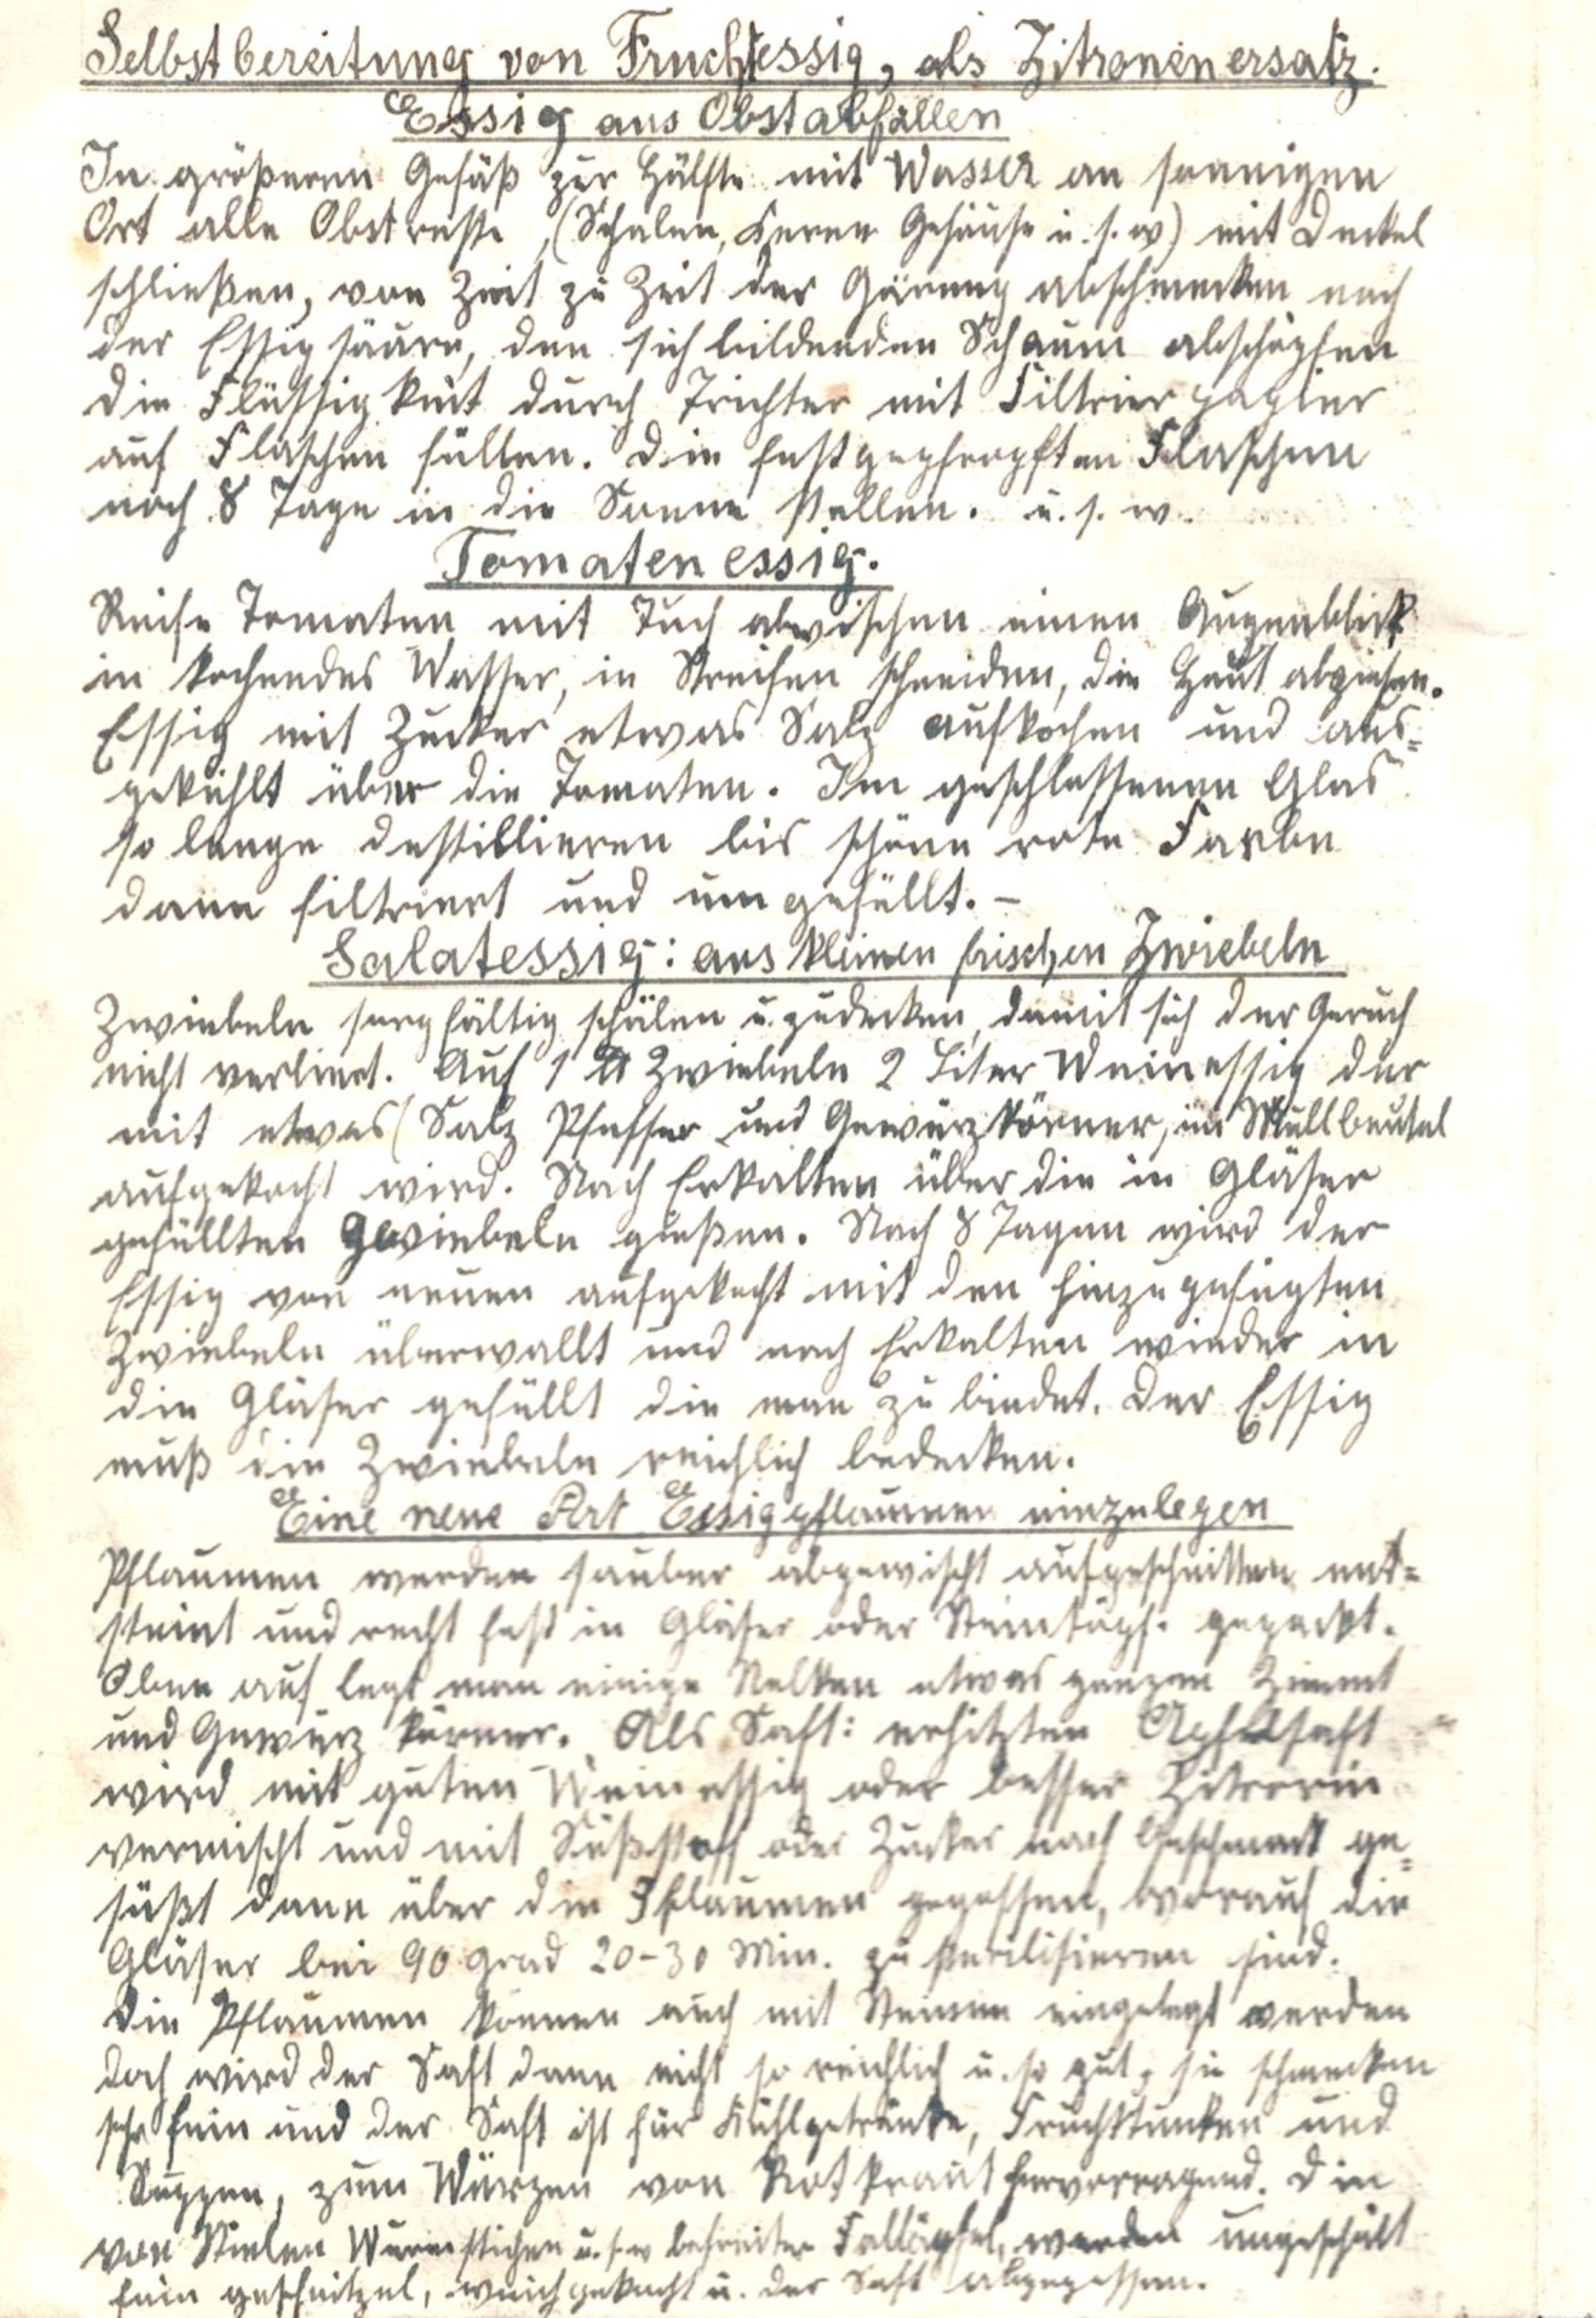 Selbstbereitung von Fruchtessig, als Zitronenersatz.
Essig aus Obstabfällen
In größeren Gefäß zur Hälfte mit Wasser an sonnigen
Ort alle Obstreste, (Schalen, Keren Gehäuse u. s. w) mit Deckel
schließen, von Zeit zu Zeit der Gärung abschmecken nach
der Essigsäure, den sich bildenden Schaum abschöpfen
die Flüssigkeit durch Trichter mit Filtrierpapier
auf Flaschen füllen. Die festgepfropften Flaschen
noch 8 Tage in die Sonne stellen. u. s. w.
Tomatenessig.
Reife Tomaten mit Tuch abwischen einen Augenblick
in kochendes Wasser, in Streifen schneiden, die Haut abziehen.
Essig mit Zucker etwas Salz aufkochen und aus=
gekühlt über die Tomaten. Im geschlossenen Glas
so lange destillieren bis schöne rote Farbe
dann filtriert und umgefüllt. –
Salatessig: aus kleinen frischen Zwiebeln
Zwiebeln sorgfältig schälen u. zudecken, damit sich der Geruch
nicht verliert. Auf 1 ℔ Zwiebeln 2 Liter Weinessig der
mit etwas (Salz Pfeffer und Gewürzkörner, im Mullbeutel
aufgekocht wird. Nach Erkalten über die in Gläser
gefüllten Zwiebeln gießen. Nach 8 Tagen wird der
Essig von neuen aufgekocht mit den hinzugefügten
Zwiebeln überwallt und nach Erkalten wieder in
die Gläser gefüllt die man zu bindet. Der Essig
muß die Zwiebeln reichlich bedecken.
Eine neue Art Essigpflaumen einzulegen
Pflaumen werden sauber abgewischt aufgeschnitten ent=
steint und recht fest in Gläser oder Steintöpf. gepackt.
Oben auf legt man einige Nelken etwas ganzen Zimmt
und Gewürz körner. Als Saft: erhitzten Apfelsaft
wird mit guten Weinessig oder besser Zitronin
vermischt und mit Süßstoff oder Zucker nach Geschmack ge=
süßt dann über die Pflaumen gegossen, worauf die
Gläser bei 90 Grad 20-30 Min. zu sterilisieren sind.
Die Pflaumen können auch mit Steinen eingelegt werden
doch wird der Saft dann nicht so reichlich u. so gut, sie schmecken
sehr fein und der Saft ist für Kühlgetränke, Fruchttunken und
Suppen, zum Würzen von Rotkraut hervorragend. Die
von Stielen Wurmstichen u. s. w befreiten Falläpfel, werden ungeschält
fein geschnitzel, weichgekocht u. der Saft abgegossen.